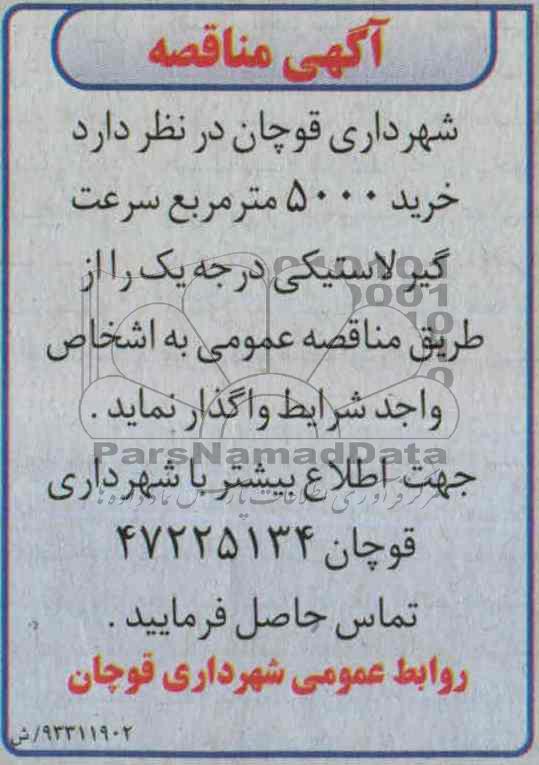 آگهی مناقصه
شهرداری قوچان در نظر دارد
خرید ۵۰۰۰ مترمربع سرعت
گیر لاستیکی درجه یک را از
طریق مناقصه عمومی به اشخاص
واجد شرایط واگذار نماید .
ParsNamadData
جهت اطلاع بیشتر با شهرداری
قوچان ۴۷۲۲۵۱۳۴
تماس حاصل فرمایید .
روابط عمومی شهرداری قوچان
۹۳۳۱۱۹۰۲/ش